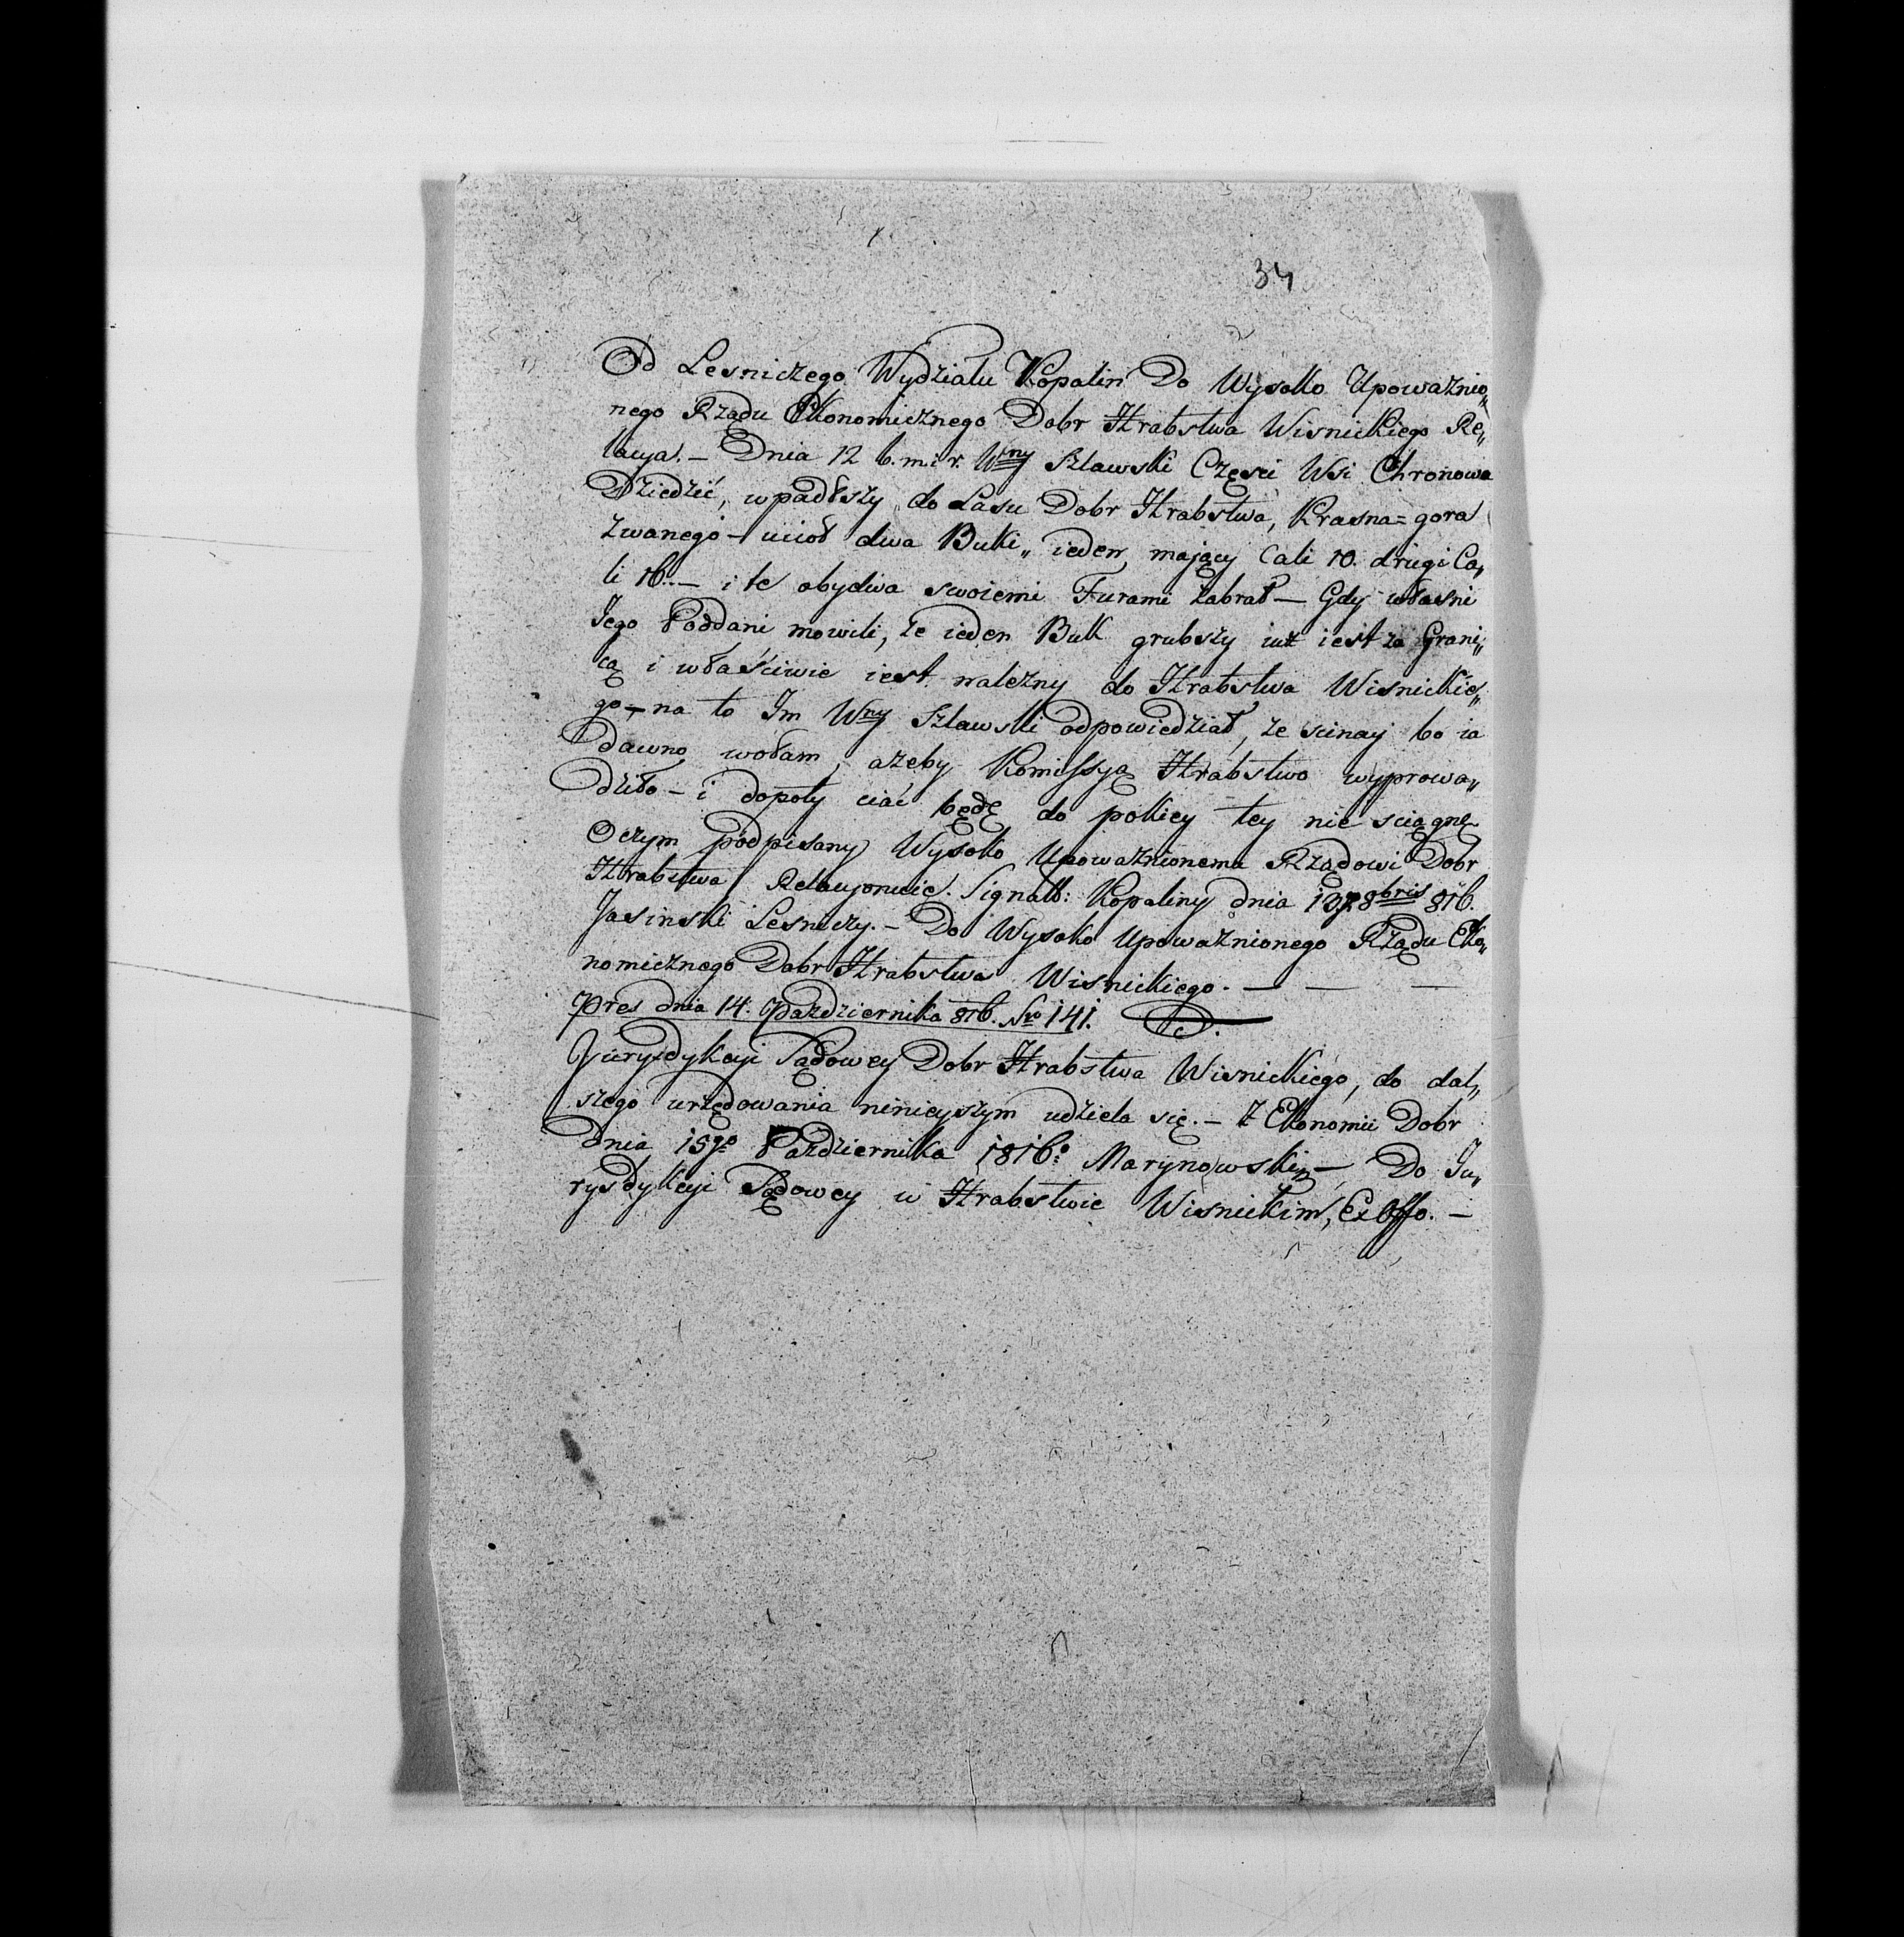 34
Od Lesniczego Wydziału Kopalin Do Wysoko Upoważnio„
nego Rządu Ekonomicznego Dobr Hrabstwa Wisnickiego Re„
lacya. – Dnia 12 b. m. i r. Wny Szlawski Częsci Wsi Chronowa
Dziedzić, wpadłszy do Lasu Dobr Hrabstwa, Krasna=gora
zwanego – ucioł dwa Buki„ ieden mający Cali 10. drugi Ca„
li 16.. – i te obydwa swoiemi Furami zabrał – Gdy własni
Jego Poddani mowili, że ieden Buk grubszy iuż iest za Grani„
cą i właściwie iest należny do Hrabstwa Wisnickie„
go – na to Im Wny Szlawski odpowiedział, że scinay bo ia
dawno wołam, ażeby Komissyą Hrabstwo wyprowa„
dziło – i dopoty ciać będę do pokiey tey nie sciągnę
Oczym podpisany Wysoko Upoważnionemu Rządowi Dobr
Hrabstwa Relacyonuie. Signatt: Kopaliny dnia 13go 8bris 816.
Jasinski Lesniczy. – Do Wysoko Upoważnionego Rządu Eko„
nomicznego Dobr Hrabstwa Wisnickiego. –
Pres dnia 14. Października 816. Nro 141.
Juryzdykcyi Sądowey Dobr Hrabstwa Wisnickiego, do dal„
szego urzędowania ninieyszym udziela się. – Z Ekonomii Dobr
Dnia 15go Października 1816. Marynowski – Do Ju„
rysdykcyi Sądowey w Hrabstwie Wisnickim, Ex Offo. –